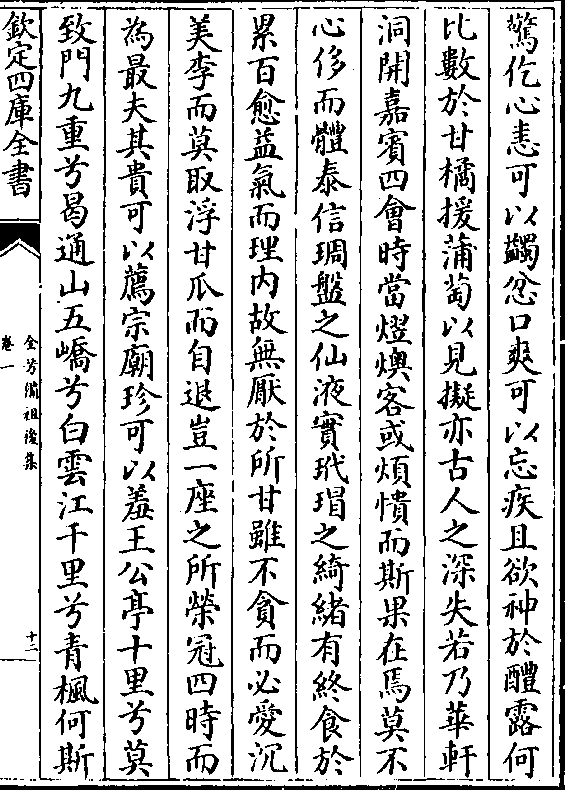 驚仡心恚可以蠲忿口爽可以忘疾且欲神於醴露何
比數於甘橘援蒲萄以見擬亦古人之深失若乃華軒
洞開嘉賓四會時當熤燠客或煩憒而斯果在焉莫不
心侈而體泰信琱盤之仙液實玳瑁之綺緒有終食於
累百愈益氣而理内故無厭於所甘雖不貪而必愛沉
美李而莫取浮甘瓜而自退豈一座之所榮冠四時而
為最夫其貴可以薦宗廟珍可以羞王公亭十里兮莫
致門九重兮曷通山五嶠兮白雲江千里兮青楓何斯
欽定四庫全書
全芳備祖後集
卷一
十二